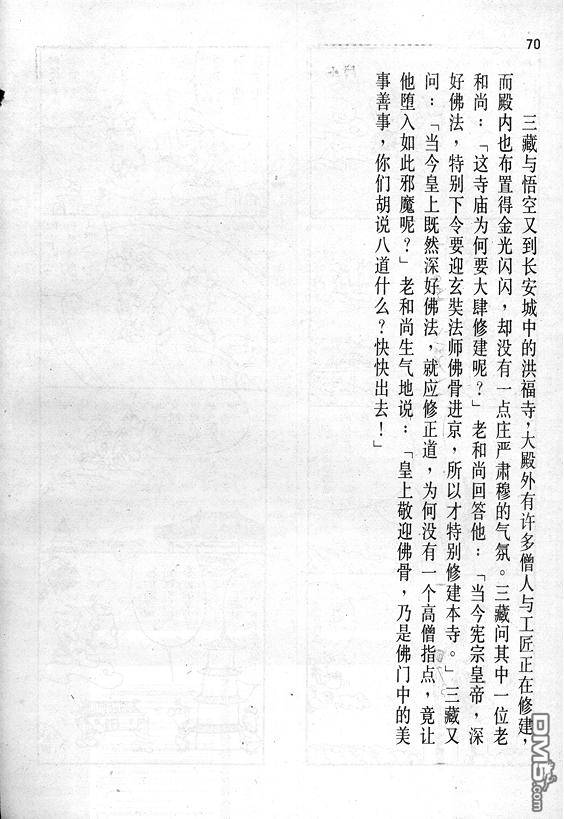 70
三藏与悟空又到长安城中的洪福寺，大殿外有许多僧人与工匠正在修建，
而殿内也布置得金光闪闪，却没有一点庄严肃穆的气氛。三藏问其中一位老
和尚：「这寺庙为何要大肆修建呢？」老和尚回答他：「当今宪宗皇帝，深
好佛法，特别下令要迎玄奘法师佛骨进京，所以才特别修建本寺。」三藏又
问：「当今皇上既然深好佛法，就应修正道，为何没有一个高僧指点，竟让
他堕入如此邪魔呢？」老和尚生气地说：「皇上敬迎佛骨，乃是佛门中的美
事善事，你们胡说八道什么？快快出去！」
DM5.com